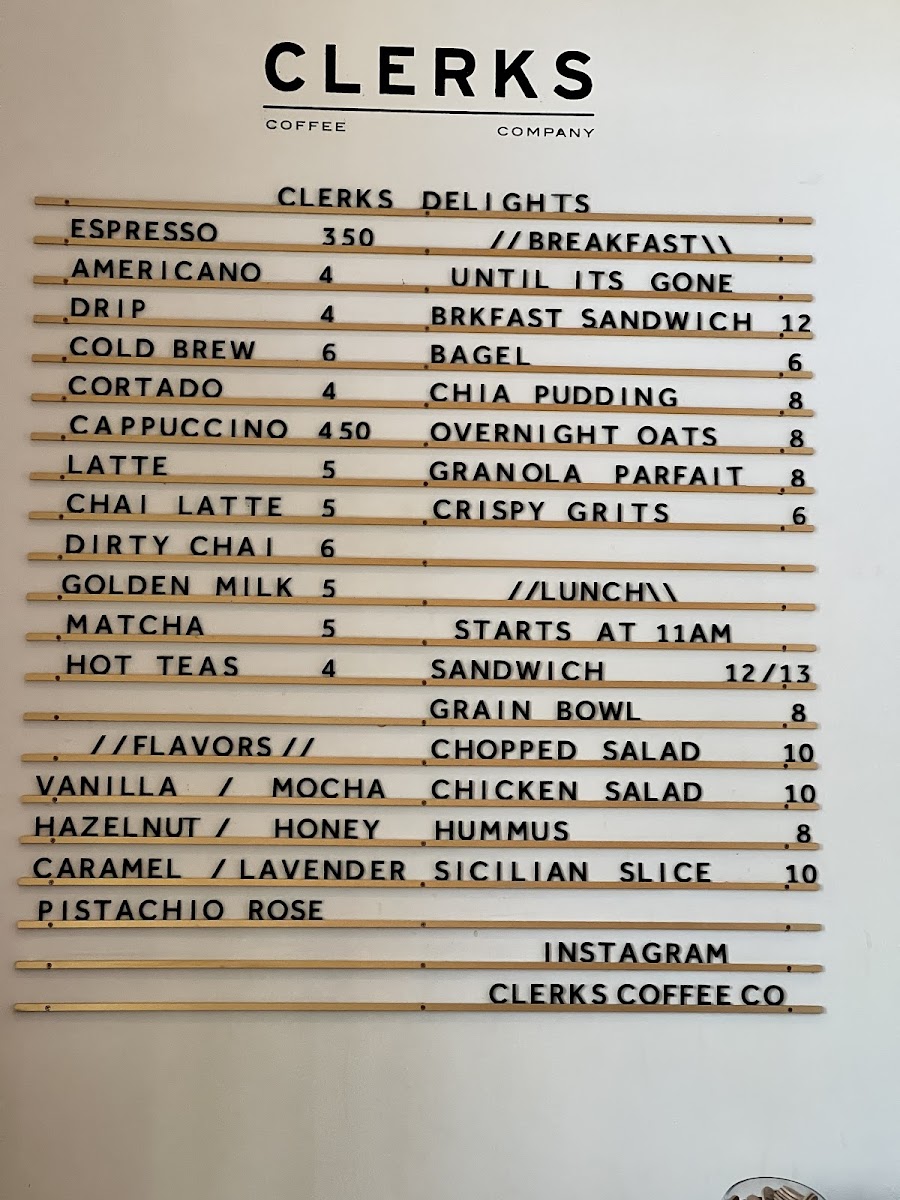 CLERKS
COFFEE COMPANY
CLERKS DELIGHTS
ESPRESSO 350
AMERICANO 4
DRIP 4
COLD BREW 6
CORTADO 4
CAPPUCCINO 450
LATTE 5
CHAI LATTE 5
DIRTY CHAI 6
GOLDEN MILK 5
MATCHA 5
HOT TEAS 4
//FLAVORS//
VANILLA / MOCHA
HAZELNUT / HONEY
CARAMEL / LAVENDER
PISTACHIO ROSE
//BREAKFAST\\
UNTIL ITS GONE
BRKFAST SANDWICH 12
BAGEL 6
CHIA PUDDING 8
OVERNIGHT OATS 8
GRANOLA PARFAIT 8
CRISPY GRITS 6
//LUNCH\\
STARTS AT 11AM
SANDWICH 12/13
GRAIN BOWL 8
CHOPPED SALAD 10
CHICKEN SALAD 10
HUMMUS 8
SICILIAN SLICE 10
INSTAGRAM
CLERKS COFFEE CO